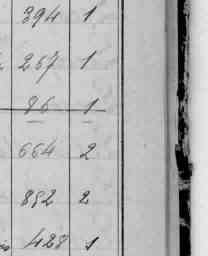 394 1
267 1
86 1
664 2
892 2
428 1